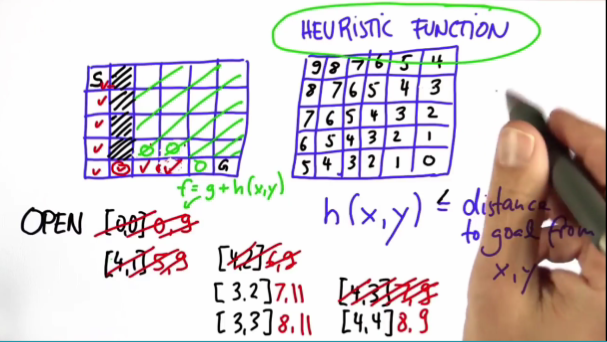 HEURISTIC FUNCTION
S
G
9 8 7 6 5 4
8 7 6 5 4 3
7 6 5 4 3 2
6 5 4 3 2 1
5 4 3 2 1 0
f = g + h(x,y)
h(x,y) ≤ distance
to goal from
x,y
OPEN [0,0] 0,9
[4,1] 5,9
[4,2] 6,9
[3.2] 7,11
[3,3] 8,11
[4,3] 7,9
[4,4] 8,9